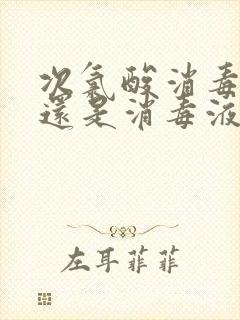 次氯酸消毒
還是消毒液
左耳菲菲